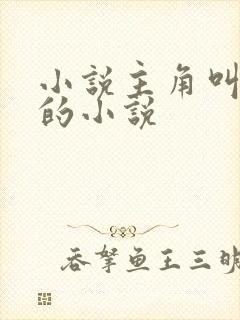 小說主角叫
的小說
吞拏魚王三明